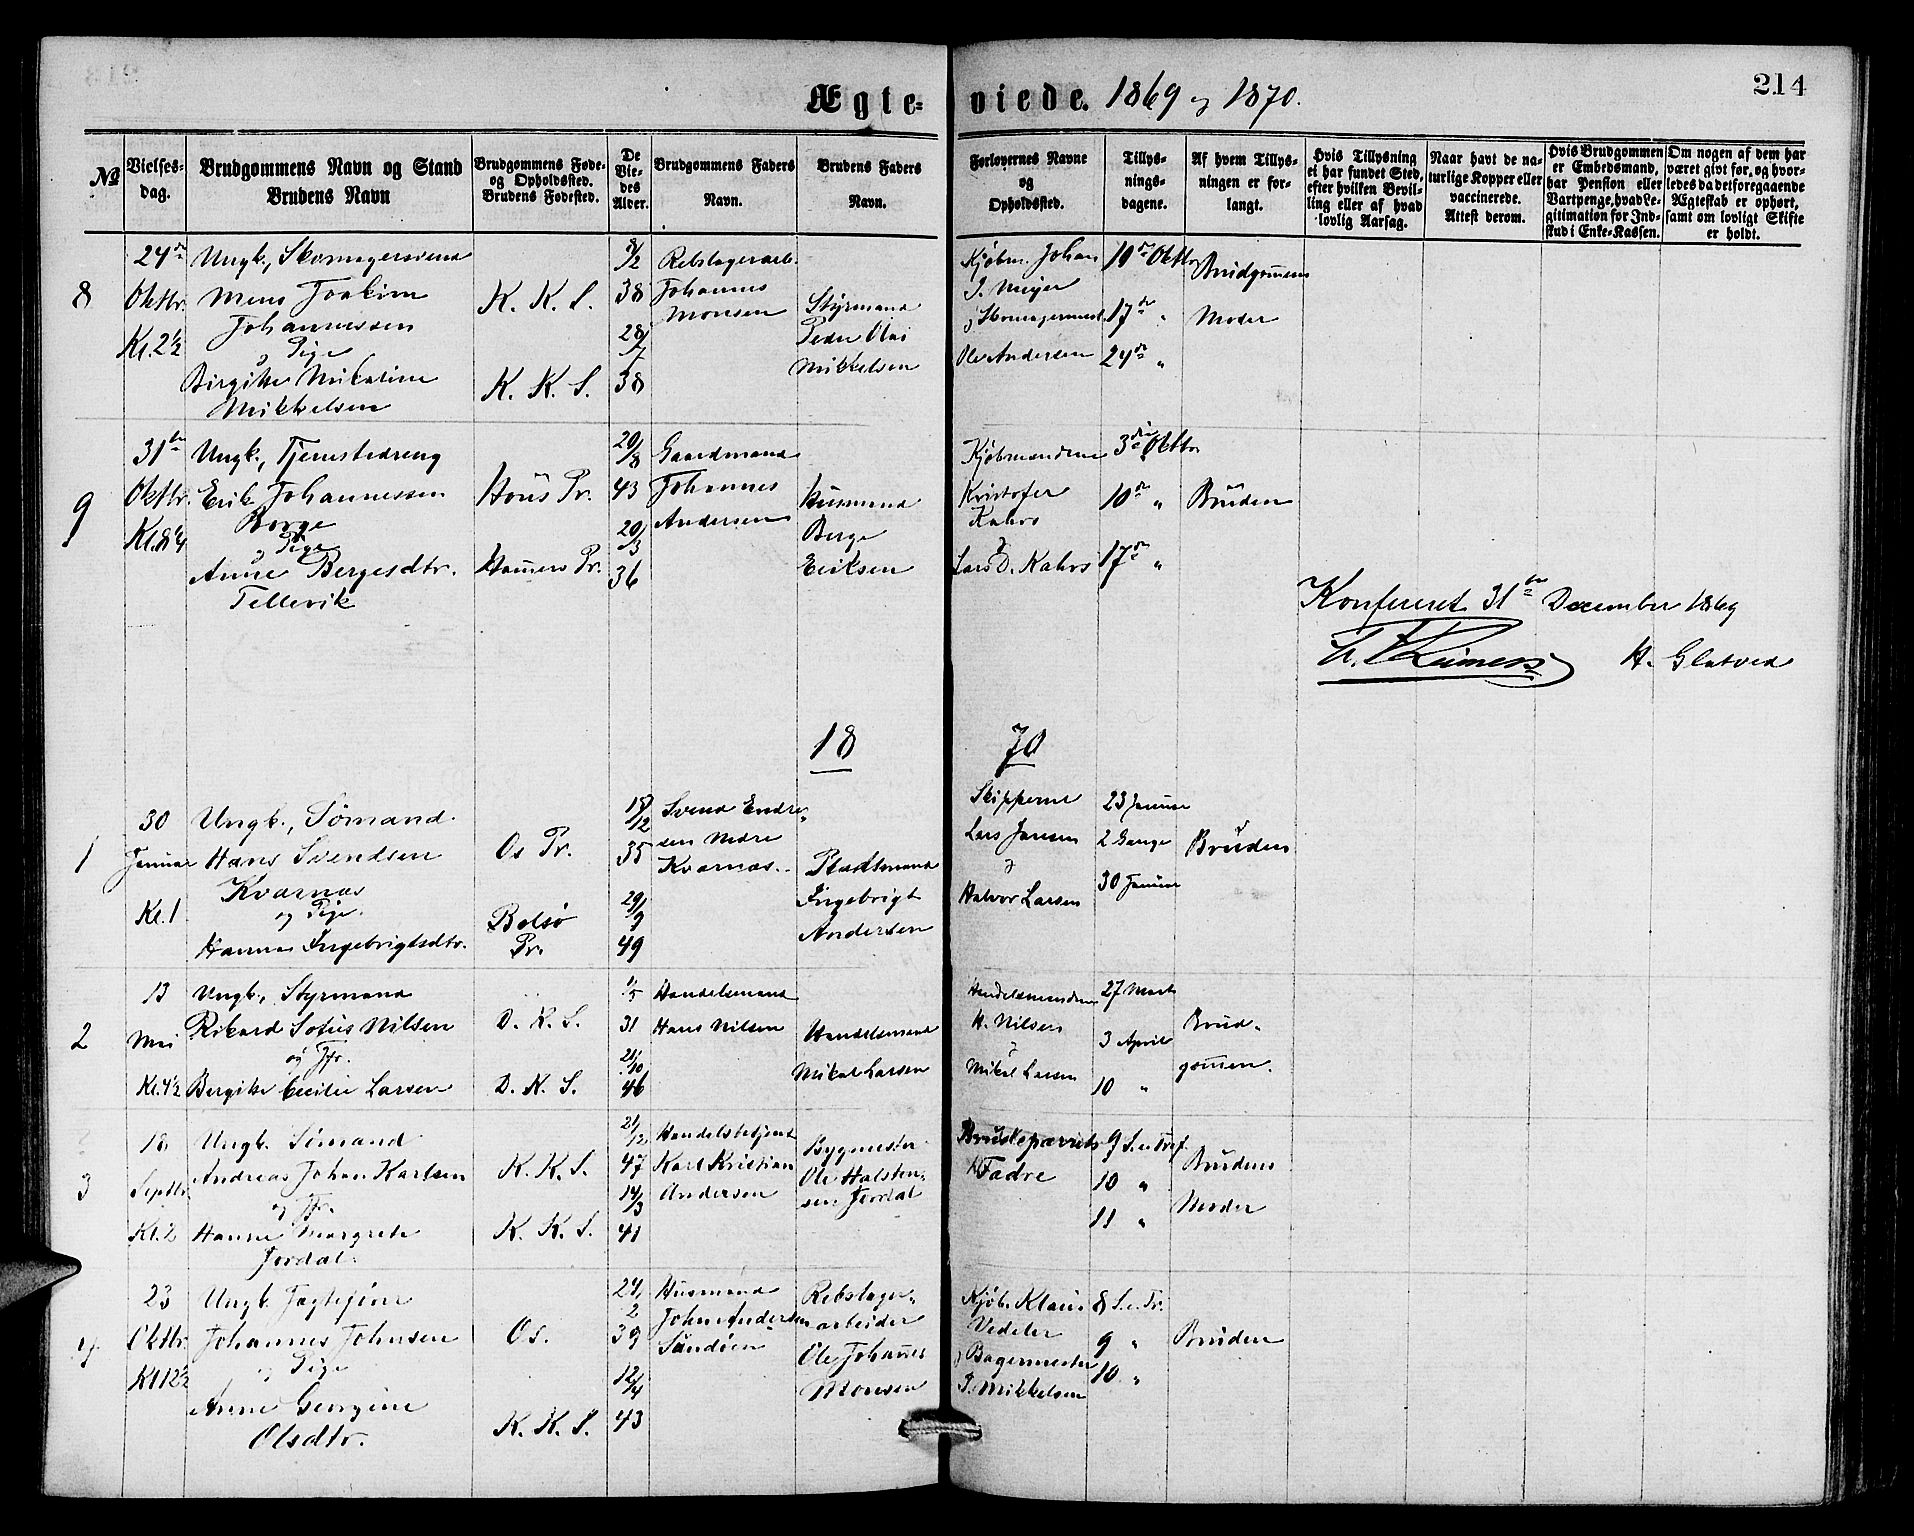 Ægte-viede. 1869 og 1870.
214
№
Vielses-
dag.
Brudgommens Navn og Stand
Brudens Navn
Brudgommens Føde-
og Opholdssted.
Brudens Fødested.
De
Vie-
des
Alder.
Brudgommens Faders
Navn.
Brudens Faders
Navn.
Forlovernes Navne
og
Opholdssted.
Tillys-
nings-
dagene.
Af hvem Tillys-
ningen er for-
langt.
Hvis Tillysning
ei har fundet Sted,
efter hvilken Bevil-
ling eller af hvad
lovlig Aarsag.
Naar havt de na-
turlige Kopper eller
vaccinerede.
Attest derom.
Hvis Brudgommen
er Embedsmand,
har Pension eller
Vartpenge, hvad Le-
gitimation for Ind-
skud i Enke-Kassen.
Om nogen af dem har
været givt før, og hvor-
ledes da det foregaaende
Ægteskab er ophørt,
samt om lovligt Skifte
er holdt.
8
24de
Oktbr.
Kl. 2½
Ungk., Skomagersvend
Mons Joakim
Johannessen
og Pige
Birgitte Mikaline
Mikkelsen
K. K. S.
K. K. S.
8/2
38
28/7
38
Rebslagerarb.
Johannes
Monsen
Styrmand
Peder Olai
Mikkelsen
Kjøbm. Johan
J. Meyer
og Skomagermest.
Ole Andersen
10de Oktbr
17de "
24de "
Brudgomens
Moder
9
31te
Oktbr.
Kl. 8¼
Ungk., Tjenestedreng
Erik Johannessen
Borge
og Pige
Anne Bergesdtr.
Tellevik
Hous Pr.
Hamers Pr.
29/8
43
20/3
36
Gaardmand
Johannes
Andersen
Husmand
Berge
Eriksen
Kjøbmændene
Kristofer
Kahrs
og
Lars D. Kahrs
3die Oktbr
10de "
17de "
Bruden
Konfereret 31te December 1869
H. Glatved
18 70
1
30
Januar
Kl. 1
Ungk., Sømand
Hans Svendsen
Kvarnæs
og Pige.
Hanna Ingebrigtsdtr.
Os Pr.
Bolsø
Pr.
18/12
35
29/9
49
Svend Endre-
sen Nedre
Kvarnæs.
Pladsmand
Ingebrigt
Andersen
Skipperne
Lars Jansen
og
Halvor Larsen
23 Januar
2 Gange
30 Januar
Bruden
2
13
Mai
Kl. 4½
Ungk., Styrmand
Rikard Sofus Nilsen
og Jfr.
Bergitte Cecilie Larsen
D. K. S.
D. K. S.
1/5
31
21/10
46
Handelsmand
Hans Nilsen
Handelsmand
Mikal Larsen
Handelsmændene
H. Nilsen
og
Mikal Larsen
27 Marts
3 April
10 "
Brud-
gomen.
3
18
Septbr.
Kl. 2
Ungk. Sømand
Andreas Johan Karlsen
og Jfr.
Hanne Margrete
Jordal.
K. K. S.
K. K. S.
21/12
47
14/3
41
Handelsbetjent
Karl Kristian
Andersen
Bygmester
Ole Halsten-
sen Jordal
Brudeparrets
Fædre
9 S. e. Tref.
10 "
11 "
Brudens
Moder
4
23
Oktbr.
Kl 12½
Ungk. Jagteskipper
Johannes Johnsen
og Pige
Anne Georgine
Olsdtr.
Os.
K. K. S.
24/2
39
12/4
43
Husmand
John Andersen
Sandøen
Rebslager-
arbeider
Ole Johanes
Monsen
Kjøb. Klaus
Vedeler
og Bagermester
J. Mikkelsen
8 S. e. Tr.
9 "
10 "
Bruden